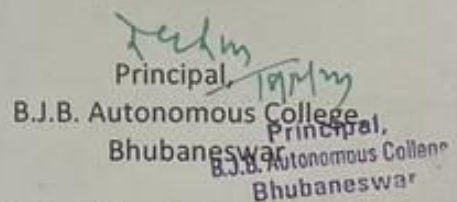 Principal,
B.J.B. Autonomous College
Bhubaneswar
Principal,
B.J.B. Autonomous College
Bhubaneswar